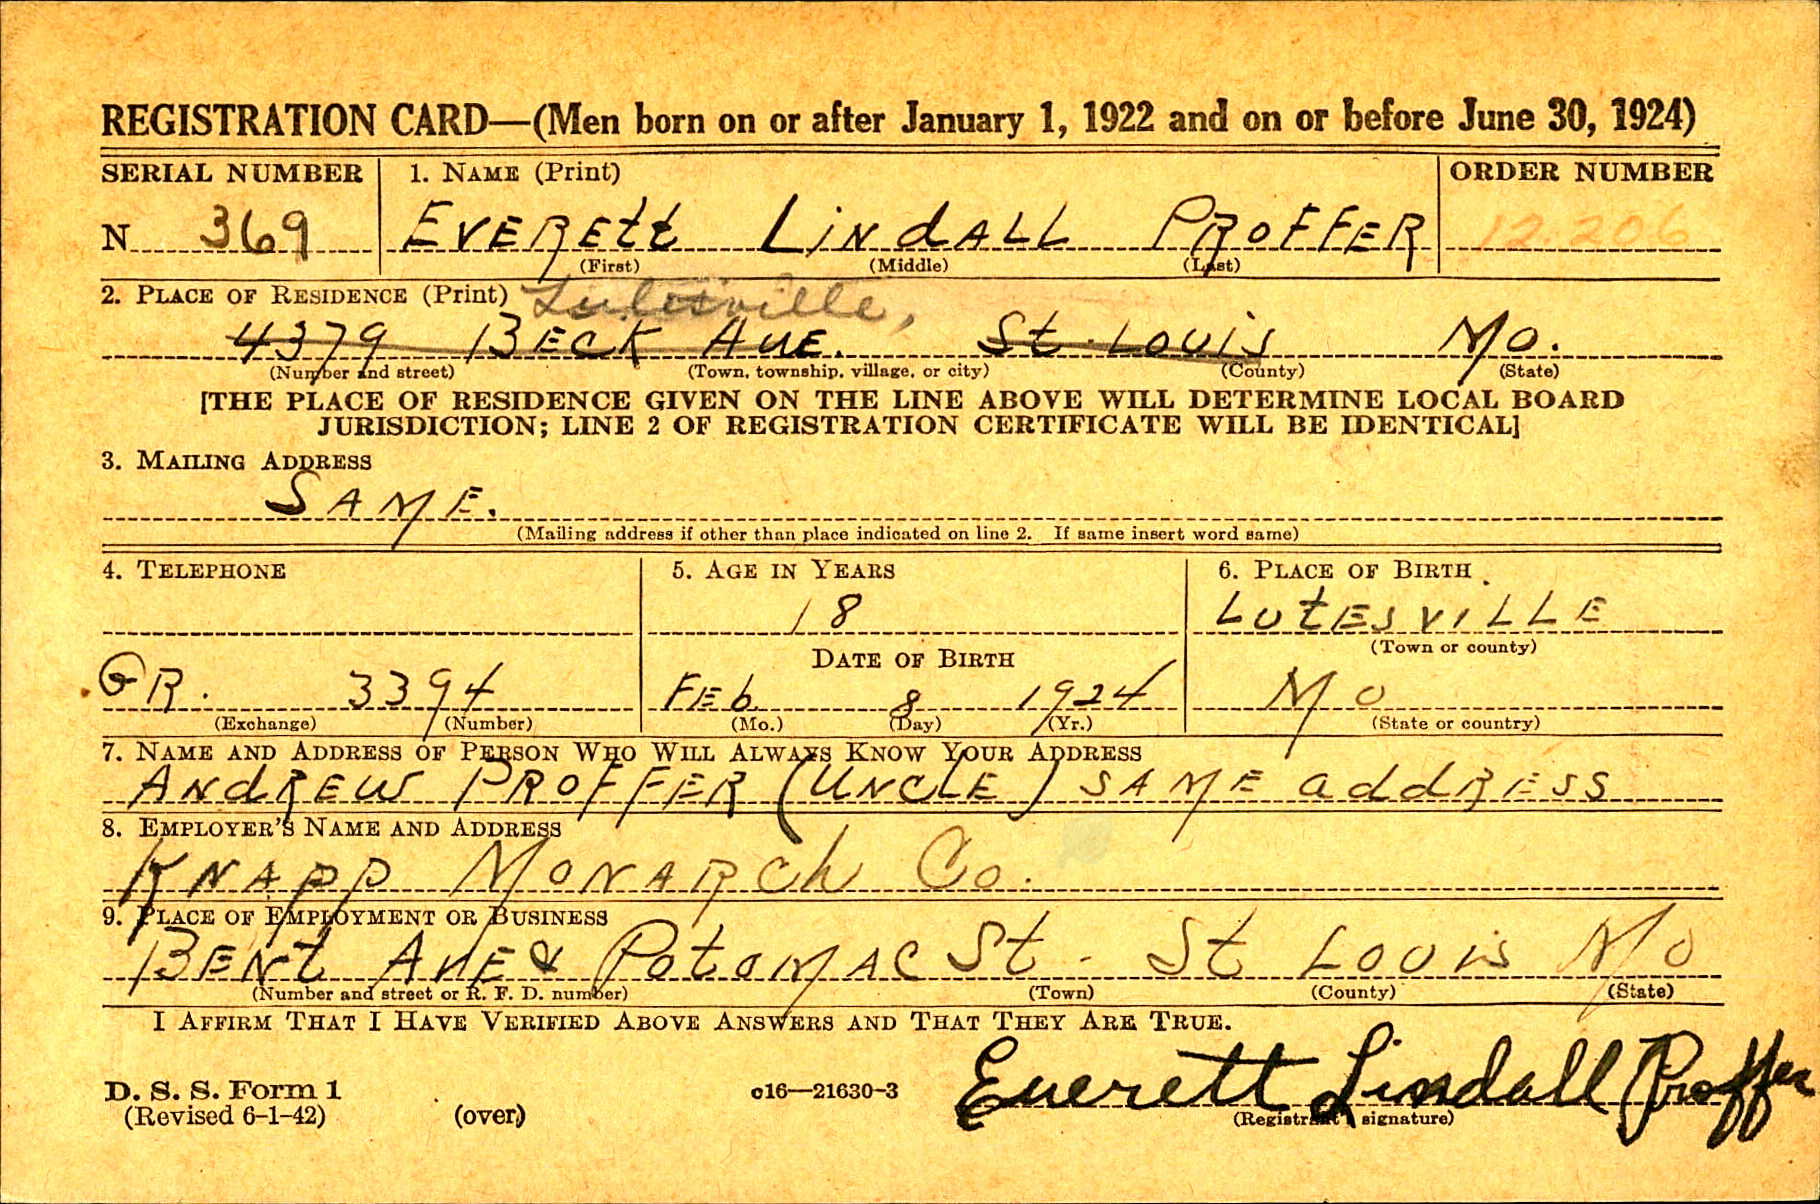 REGISTRATION CARD—(Men born on or after January 1, 1922 and on or before June 30, 1924)
SERIAL NUMBER 1. NAME (Print) ORDER NUMBER
N 369 EVEREtt LiNdALL PROFFER 12.206
(First) (Middle) (Last)
2. PLACE OF RESIDENCE (Print) Lutesville,
4379 BECK AVE. St. Louis Mo.
(Number and street) (Town, township, village, or city) (County) (State)
[THE PLACE OF RESIDENCE GIVEN ON THE LINE ABOVE WILL DETERMINE LOCAL BOARD
JURISDICTION; LINE 2 OF REGISTRATION CERTIFICATE WILL BE IDENTICAL]
3. MAILING ADDRESS
SAME.
(Mailing address if other than place indicated on line 2. If same insert word same)
4. TELEPHONE 5. AGE IN YEARS 6. PLACE OF BIRTH
18 LUtESViLLE
DATE OF BIRTH (Town or county)
GR. 3394 FEb 8 1924 MO
(Exchange) (Number) (Mo.) (Day) (Yr.) (State or country)
7. NAME AND ADDRESS OF PERSON WHO WILL ALWAYS KNOW YOUR ADDRESS
ANdREW PROFFER (UNCLE) SAME addRESS
8. EMPLOYER'S NAME AND ADDRESS
KNAPP MONARCh Co.
9. PLACE OF EMPLOYMENT OR BUSINESS
BENt AVE & PotoMAC St. St Louis Mo
(Number and street or R. F. D. number) (Town) (County) (State)
I AFFIRM THAT I HAVE VERIFIED ABOVE ANSWERS AND THAT THEY ARE TRUE.
D. S. S. Form 1 c16—21630-3 Everett Lindall Proffer
(Revised 6-1-42) (over) (Registrant's signature)